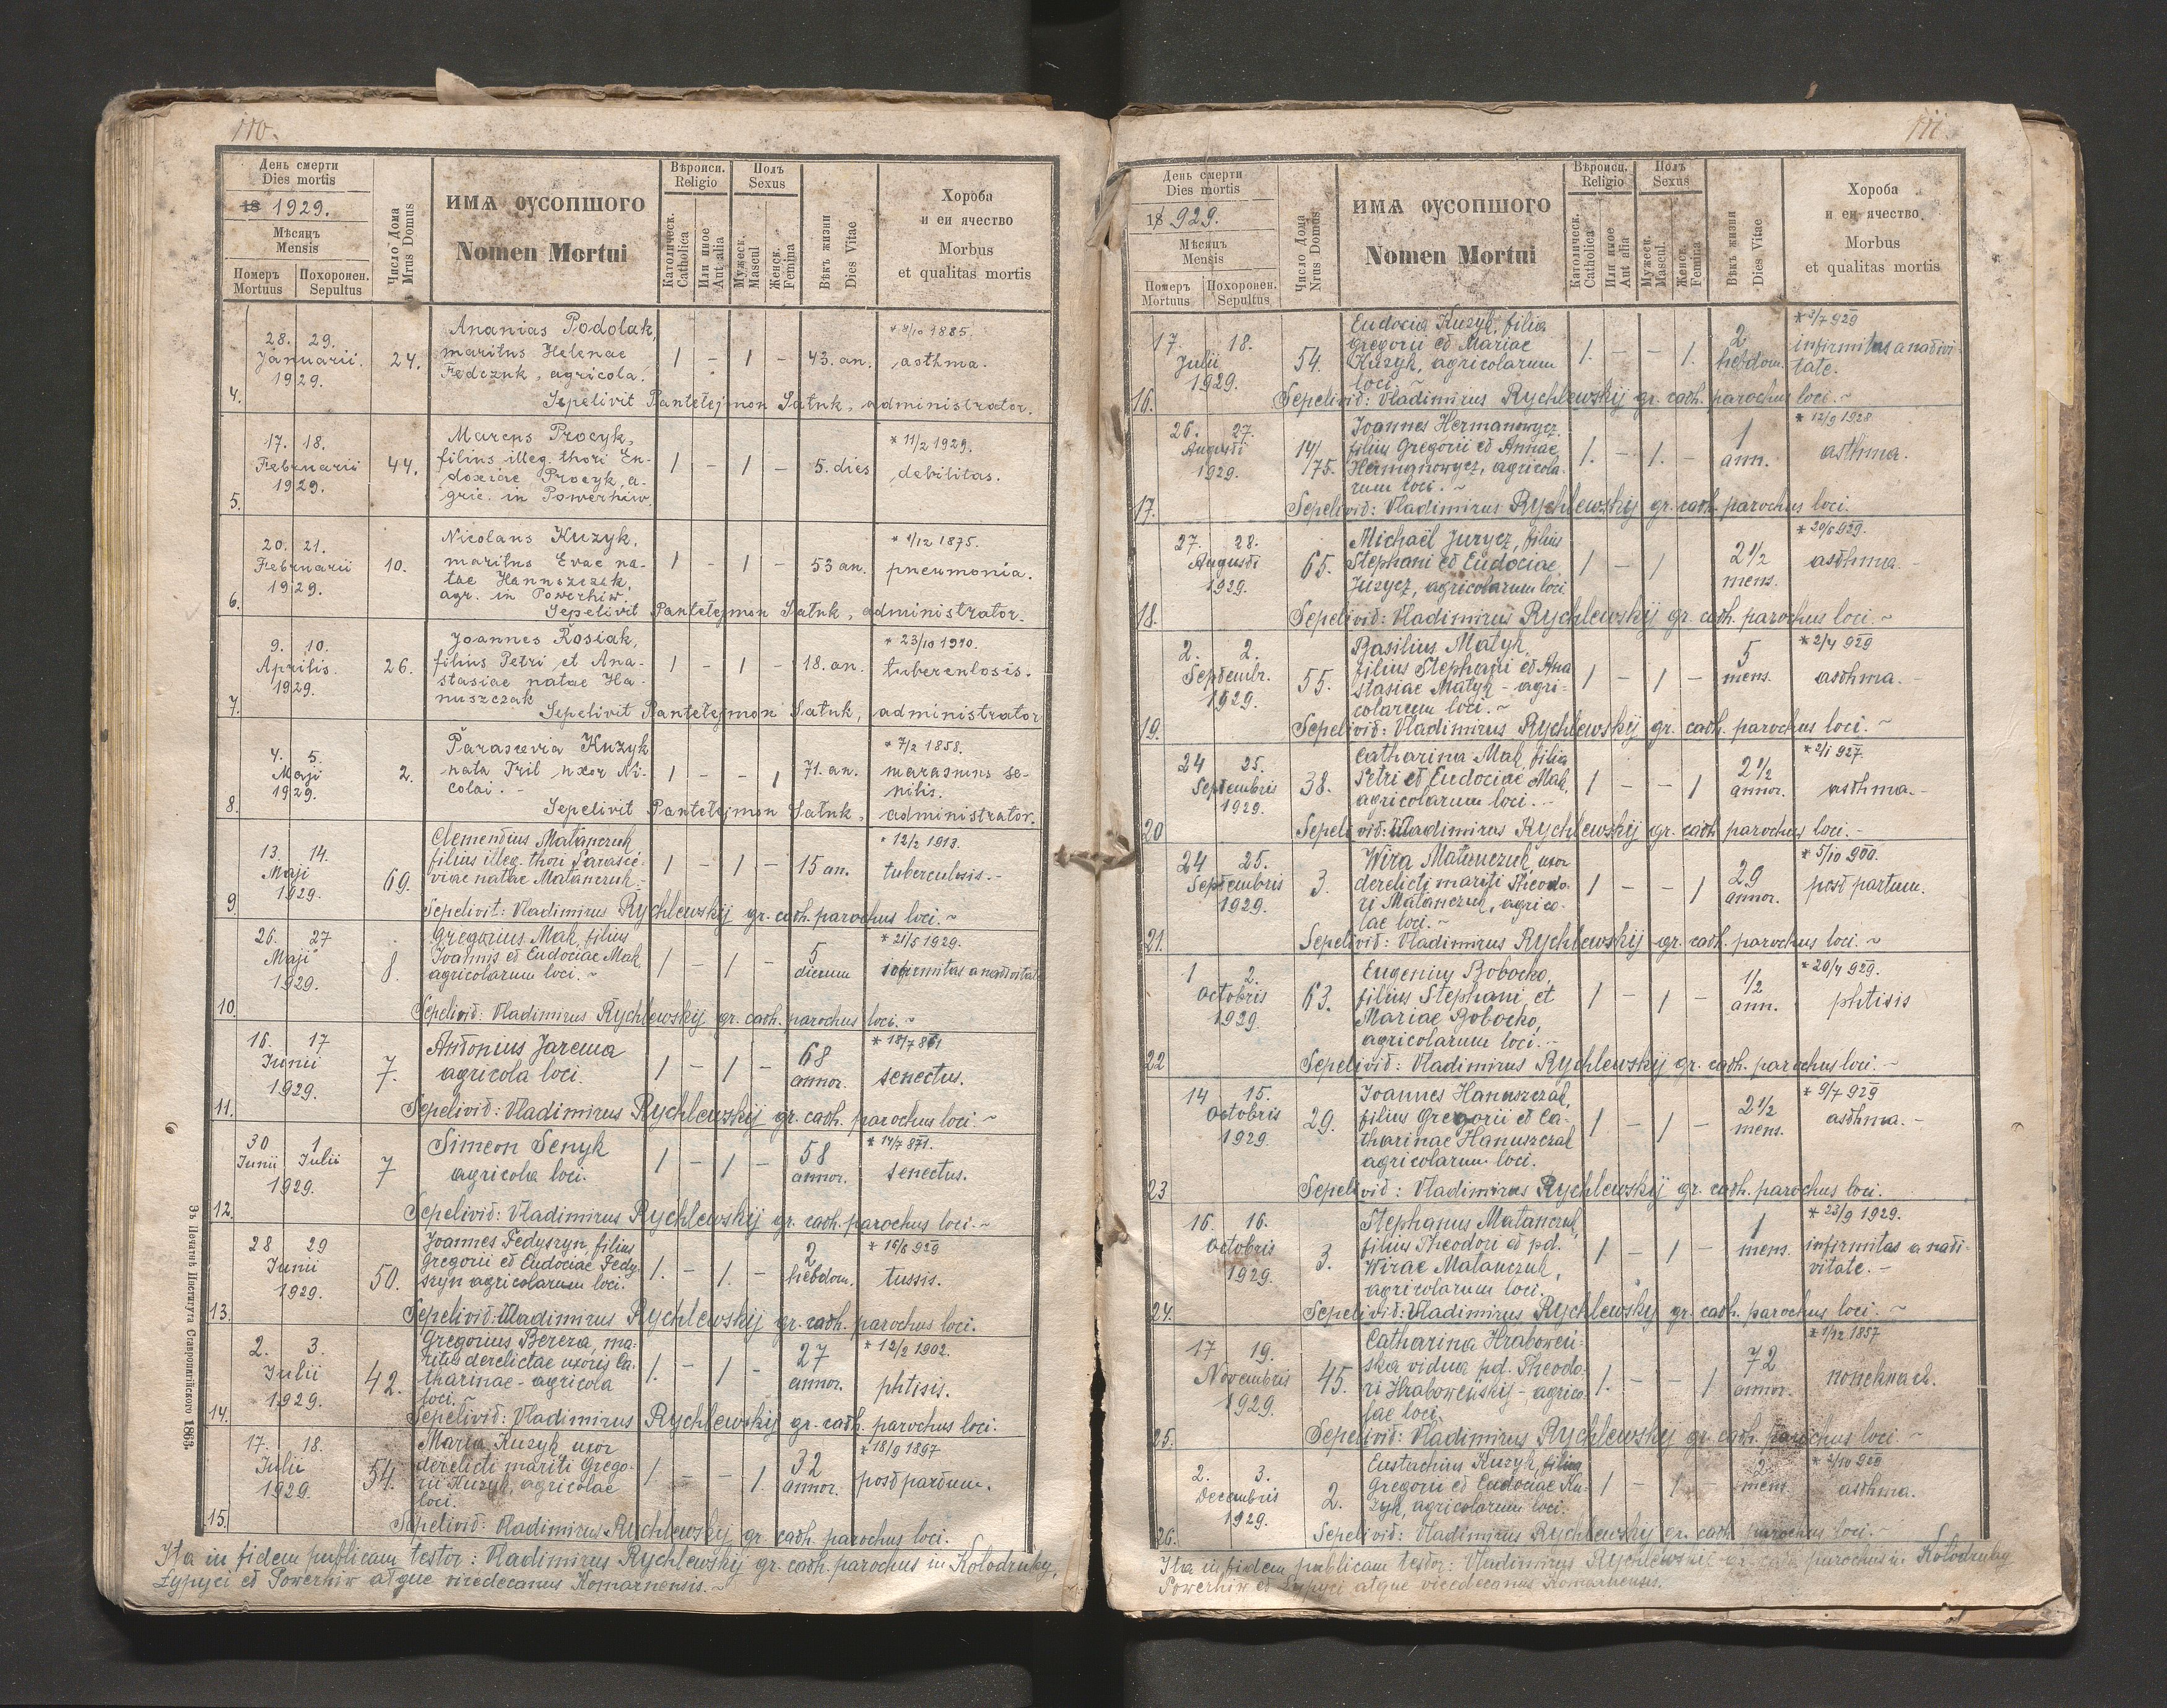 110.
День смерти
Dies mortis
18 1929.
Мѣсяць
Mensis
Померъ
Mortuus
Похоронен.
Sepultus
Число Дома
Nrus Domus
ИМА ОУСОПШОГО
Nomen Mortui
Вѣроисп.
Religio
Католическ.
Catholica
Или иное
Aut alia
Полъ
Sexus
Мужеск.
Mascul
Женск.
Femina
Вѣкъ жизни
Dies Vitae
Хороба
и еи ячество
Morbus
et qualitas mortis
4.
28. 29.
Januarii.
1929.
24.
Ananias Podolak,
maritus Helenae
Fedczuk, agricola.
1 - 1 -
43. an.
* 8/10 1885.
asthma.
Sepelivit Pantelejmon Saluk, administrator.
5.
17. 18.
Februarii
1929.
44.
Marcus Procyk,
filius illeg. thori Eu-
doxiae Procyk, a-
gric. in Powerhiw.
1 - 1 -
5. dies
* 11/2 1929.
debilitas.
6.
20. 21.
Februarii
1929.
10.
Nicolaus Kuzyk,
maritus Evae na-
tae Hanuszczak,
agr. in Powerhiw.
1 - 1 -
53 an.
* 1/12 1875.
pneumonia.
Sepelivit Pantelejmon Saluk, administrator.
7.
9. 10.
Aprilis.
1929.
26.
Joannes Rosiak,
filius Petri et Ana-
stasiae natae Ha-
nuszczak
1 - 1 -
18. an.
* 23/10 1910.
tuberculosis.
Sepelivit Pantelejmon Saluk, administrator
8.
4. 5.
Maji
1929.
2.
Parascevia Kuzyk
nata Tril uxor Ni-
colai. -
1 - - 1
71. an.
* 7/2 1858.
marasmus se-
nilis.
Sepelivit Pantelejmon Saluk, administrator.
9.
13. 14.
Maji
1929.
69.
Clementius Matanczuk
filius illeg. thori Parasce-
viae natae Matanczuk.-
1 - 1 -
15 an.
* 12/2 1913.
tuberculosis.-
Sepelivit: Vladimirus Rychlewskij gr. cath. parochus loci.~
10.
26. 27
Maji
1929.
8.
Gregorius Mak, filius
Joannis et Eudociae Mak,
agricolarum loci. ~
1 - 1 -
5
dierum
* 21/5 1929.
infirmitas a nativitate
Sepelivit: Vladimirus Rychlewskij gr. cath. parochus loci. ~
11.
16. 17
Junii
1929.
7.
Antonius Jarema
agricola loci.
1 - 1 -
68
annor.
* 18/7 861
senectus.
Sepelivit: Vladimirus Rychlewskij gr. cath. parochus loci. ~
12.
30 1
Junii Julii
1929.
7
Simeon Senyk
agricola loci.
1 - 1 -
58
annor.
* 14/7 871.
senectus.
Sepelivit: Vladimirus Rychlewskij gr. cath. parochus loci. ~
13.
28 29
Junii
1929.
50.
Joannes Fedyszyn, filius
Gregorii et Eudociae Fedy-
szyn agricolarum loci.
1. - 1. -
2
hebdom.
* 16/6 929
tussis.
Sepelivit: Vladimirus Rychlewskij gr. cath. parochus loci.
14.
2. 3.
Julii
1929.
42.
Gregorius Bereza, ma-
ritus derelictae uxoris Ca-
tharinae - agricola
loci. ~
1. - 1 -
27
annor.
* 12/2 1902.
phtisis.
Sepelivit: Vladimirus Rychlewskij gr. cath. parochus loci.
15.
17. 18.
Julii
1929.
54.
Maria Kuzyk, uxor
derelicti mariti Grego-
rii Kuzyk, agricolae
loci.
1. - - 1.
32
annor.
* 18/9 1897
post partum.
Sepelivit: Vladimirus Rychlewskij gr. cath. parochus loci.
Ita in fidem publicam testor: Vladimirus Rychlewskij gr. cath. parochus in Kołodruby,
Łypyci et Powerhiw atque vicedecanus Komarnensis. ~
Зъ Печатнѣ Института Ставропигійского 1863.
111.
День смерти
Dies mortis
18 929.
Мѣсяць
Mensis
Померъ
Mortuus
Похоронен.
Sepultus
Число Дома
Nrus Domus
ИМА ОУСОПШОГО
Nomen Mortui
Вѣроисп.
Religio
Католическ.
Catholica
Или иное
Aut alia
Полъ
Sexus
Мужеск.
Mascul.
Женск.
Femina
Вѣкъ жизни
Dies Vitae
Хороба
и еи ячество.
Morbus
et qualitas mortis
16.
17. 18.
Julii
1929.
54.
Eudocia Kuzyk, filia
Gregorii et Mariae
Kuzyk, agricolarum
loci. ~
1. - - 1.
2
hebdom.
* 3/7 929
infirmitas a nativi-
tate.
Sepelivit: Vladimirus Rychlewskij gr. cath. parochus loci. ~
17.
26. 27.
Augusti
1929.
14/75.
Joannes Hermanowycz
filius Gregorii et Annae
Hermanowycz, agricola-
rum loci. ~
1. - 1. -
1
ann.
* 12/9 1928
asthma.
Sepelivit: Vladimirus Rychlewskij gr. cath. parochus loci.
18.
27. 28.
Augusti
1929.
65.
Michaël Jurycz, filius
Stephani et Eudociae
Jurycz, agricolarum loci.
1 - 1
2 1/2
mens.
* 20/6 929.
asthma. -
Sepelivit: Vladimirus Rychlewskij gr. cath. parochus loci. ~
19.
2. 2.
Septembr.
1929.
55.
Basilius Matyk,
filius Stephani et Ana
stasiae Matyk - agri-
colarum loci. ~
1 - 1 -
5
mens.
* 2/4 929
asthma. -
Sepelivit: Vladimirus Rychlewskij gr. cath. parochus loci. ~
20
24 25.
Septembris
1929.
38.
Catharina Mak, filia
Petri et Eudociae Mak,
agricolarum loci. -
1 - - 1
2 1/2
annor.
* 2/1 927.
asthma. -
Sepelivit: Vladimirus Rychlewskij gr. cath. parochus loci. -
21.
24 25.
Septembris
1929.
3.
Wira Matanczuk, uxor
derelicti mariti Theodo-
ri Matanczuk, agrico-
lae loci. ~
1 - - 1
29
annor.
* 5/10 900.
post partum.
Sepelivit: Vladimirus Rychlewskij gr. cath. parochus loci. ~
22
1 2.
Octobris
1929.
63.
Eugenius Bobocko,
filius Stephani, et
Mariae Bobocko,
agricolarum loci. -
1 - 1 -
1/2
ann.
* 20/4 929.
phtisis
Sepelivit: Vladimirus Rychlewskij gr. cath. parochus loci. -
23
14 15.
Octobris
1929.
29.
Joannes Hanuszczak,
filius Gregorii et Ca-
tharinae Hanuszczak
agricolarum loci.
1 - 1 -
2 1/2
mens.
* 9/7 929
asthma. -
Sepelivit: Vladimirus Rychlewskij gr. cath. parochus loci.
24.
16. 16.
Octobris
1929.
3.
Stephanus Matanczuk,
filius Theodori et pd.
Wirae Matanczuk,
agricolarum loci.
1 - 1 -
1
mens.
* 23/9 1929.
infirmitas a nati-
vitate. -
Sepelivit: Vladimirus Rychlewskij gr. cath. parochus loci. ~
25.
17 19.
Novembris
1929.
45.
Catharina Hraboweń-
ska vidua pd. Theodo-
ri Hraboweńskij - agrico-
lae loci.
1. - - 1
72
annor.
* 1/12 1857
Sepelivit: Vladimirus Rychlewskij gr. cath. parochus loci. ~
26.
2. 3.
Decembris
1929.
2.
Eustachius Kuzyk, filius
Gregorii et Eudociae Ku-
zyk, agricolarum loci.
1 - 1 -
2
mens.
asthma.
Sepelivit: Vladimirus Rychlewskij gr. cath. parochus loci. -
Ita in fidem publicam testor: Vladimirus Rychlewskij gr. cath. parochus in Kołodruby
Powerhiw et Łypyci atque vicedecanus Komarnensis.